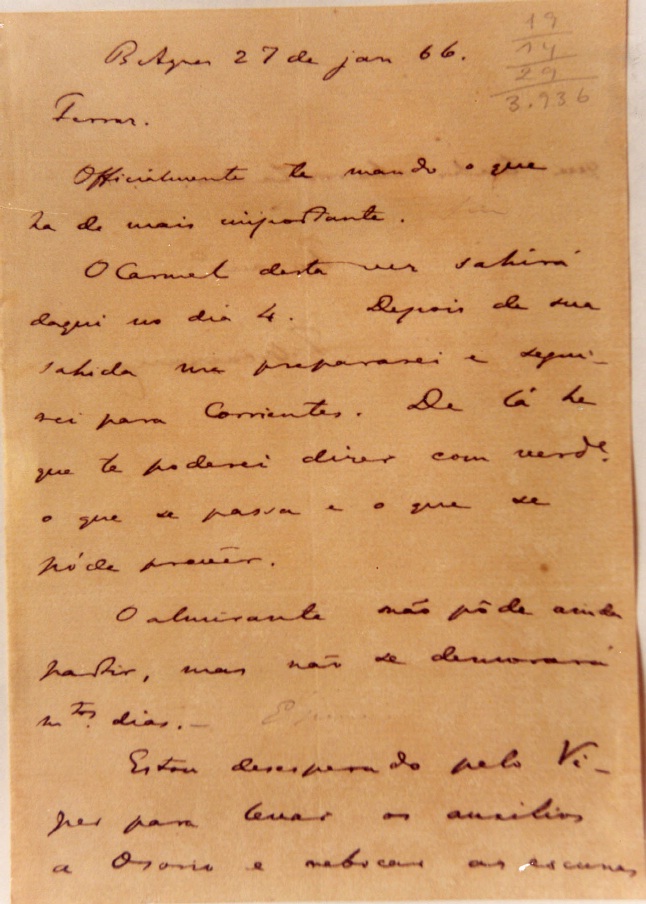 BAyres 27 de jan 66.
19
14
29
3.936
Ferraz.
Officialmente te mando o que
ha de mais importante.
O Carmel desta vez sahirá
daqui no dia 4. Depois de sua
sahida me prepararei e segui-
rei para Corrientes. De lá he
que te poderei dizer com verd.e
o que se passa e o que se
póde prevêr.
O almirante não póde ainda
partir, mas não se demorará
m.tos dias.—
Estou desesperado pelo Vi-
per para levar os auxilios
a Osorio e rebocar as escunas